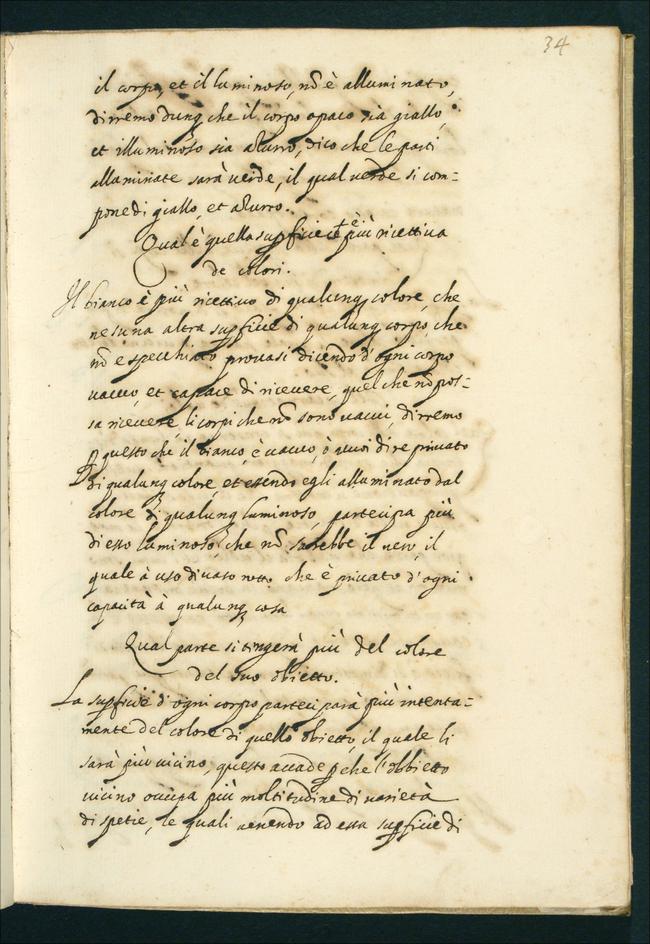 34
il corpo, et il luminoso, nō è alluminato,
dirremo dunq che il corpo opaco sia giallo,
et illuminoso sia azurro, dico che le parti
alluminate sarà verde, il qual verde si com=
pone di giallo, et azurro.
Qual è quella supficie ch è più ricettiua
de colori.
Il bianco è più ricettiuo di qualunq colore, che
nesuna altra supficie di qualunq corpo, che
nō e specchiato prouasi dicendo d'ogni corpo
uacuo, et capace di riceuere, quel che nō pos=
sa riceuere, li corpi che nō sono uacui, dirremo
p questo che il bianco, è uacuo, ò uuoi dire priuato
di qualunq colore, et essendo egli alluminato dal
colore di qualunq luminoso, partecipa più
di esso luminoso, che nō sarebbe il nero, il
quale à uso di uaso rotto che è priuato d'ogni
capacità à qualunq cosa
Qual parte si tingerà più del colore
del suo obietto.
La supficie d'ogni corpo parteciparà più intenta=
mente del colore di quello obietto, il quale li
sarà più uicino, questo accade pche l'obbietto
uicino occupa più moltitudine di uarietà
di spetie, le quali uenendo ad essa supficie di